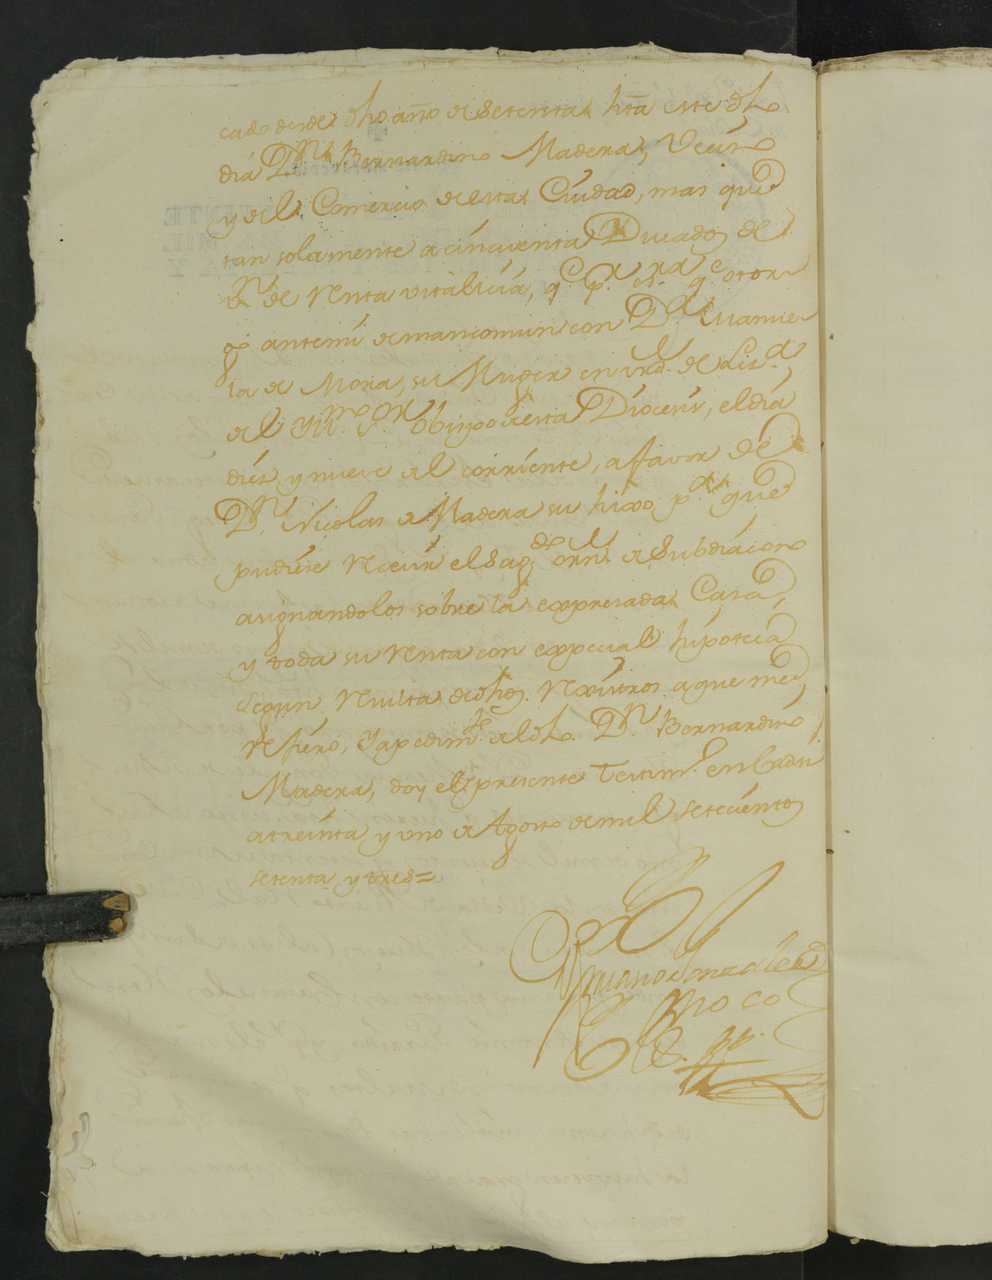 cado desde dho año de setenta, hta este dho
dia Dn. Bernardino Madera, Vecino
y de el Comercio de esta Ciudad, mas que
tan solamente a cincuenta Ducados de
Vn. de Renta vitalicia, q. p. q. otor
gó antemi de mancomun con Da. Manue
la de Mora, su Muger en vrd. de Liza.
de el Ilmo. Sr. Obispo de esta Diocesis, el dia
diez y nueve de el corriente, a favor de
Dn. Nicolas de Madera su hixo, pa. que
pudiese Recivir el Sagdo. orn. de Subdiacono
asignandolos sobre la expresada Casa,
y toda su Renta con expecial hipoteca
segun Resulta de dhos. Rexistros. a que me
Refiero, y a pedimto. de el dho. Dn. Bernardino
Madera, doy el presente Testimo. en Cadiz
a treinta y uno de Agosto de mil setecientos
setenta y tres=
Gonzalez
Moco